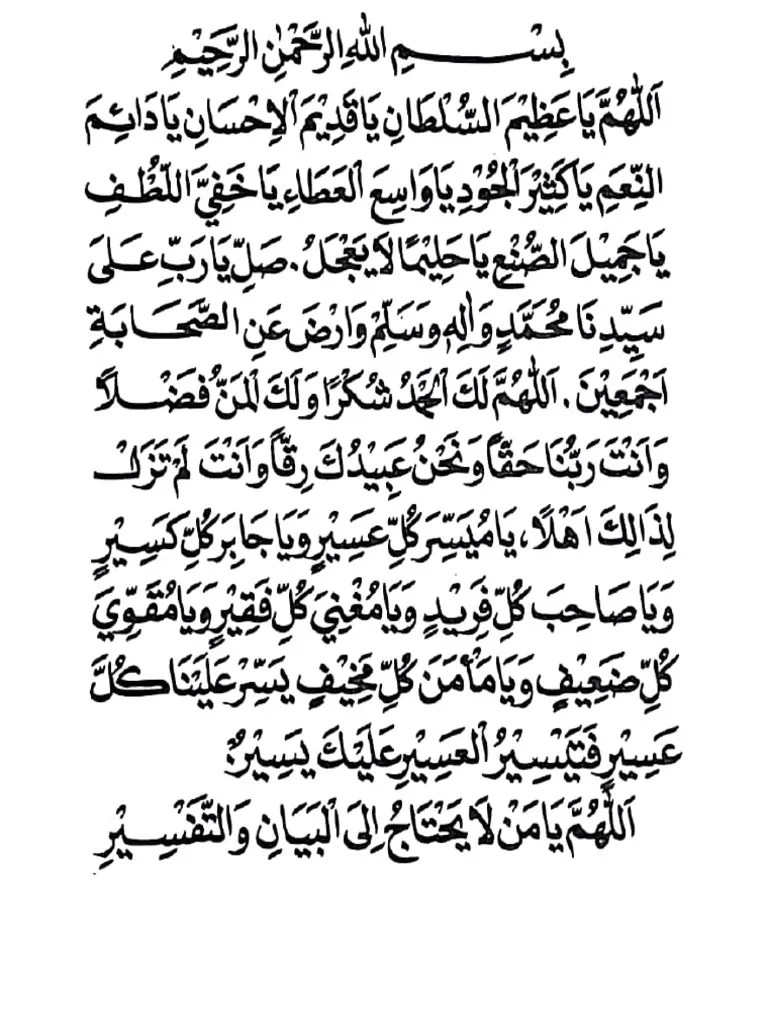 بِسْــــمِ اللهِ الرَّحْمٰنِ الرَّحِيْمِ
اَللّٰهُمَّ يَا عَظِيْمَ السُّلْطَانِ يَا قَدِيْمَ الْاِحْسَانِ يَا دَائِمَ
النِّعَمِ يَا كَثِيْرَ الْجُوْدِ يَا وَاسِعَ الْعَطَاءِ يَا خَفِيَّ اللُّطْفِ
يَا جَمِيْلَ الصُّنْعِ يَا حَلِيْمًا لَا يَعْجَلُ. صَلِّ يَا رَبِّ عَلَى
سَيِّدِنَا مُحَمَّدٍ وَاٰلِهِ وَسَلِّمْ وَارْضَ عَنِ الصَّحَابَةِ
اَجْمَعِيْنَ. اَللّٰهُمَّ لَكَ الْحَمْدُ شُكْرًا وَلَكَ الْمَنُّ فَضْلًا
وَاَنْتَ رَبُّنَا حَقًّا وَنَحْنُ عَبِيْدُكَ رِقًّا وَاَنْتَ لَمْ تَزَلْ
لِذَالِكَ اَهْلًا، يَا مُيَسِّرَ كُلِّ عَسِيْرٍ وَيَا جَابِرَ كُلِّ كَسِيْرٍ
وَيَا صَاحِبَ كُلِّ فَرِيْدٍ وَيَا مُغْنِيَ كُلِّ فَقِيْرٍ وَيَا مُقَوِّيَ
كُلِّ ضَعِيْفٍ وَيَا مَأْمَنَ كُلِّ مَخِيْفٍ يَسِّرْ عَلَيْنَا كُلَّ
عَسِيْرٍ فَتَيْسِيْرُ الْعَسِيْرِ عَلَيْكَ يَسِيْرٌ.
اَللّٰهُمَّ يَا مَنْ لَا يَحْتَاجُ اِلَى الْبَيَانِ وَالتَّفْسِيْرِ